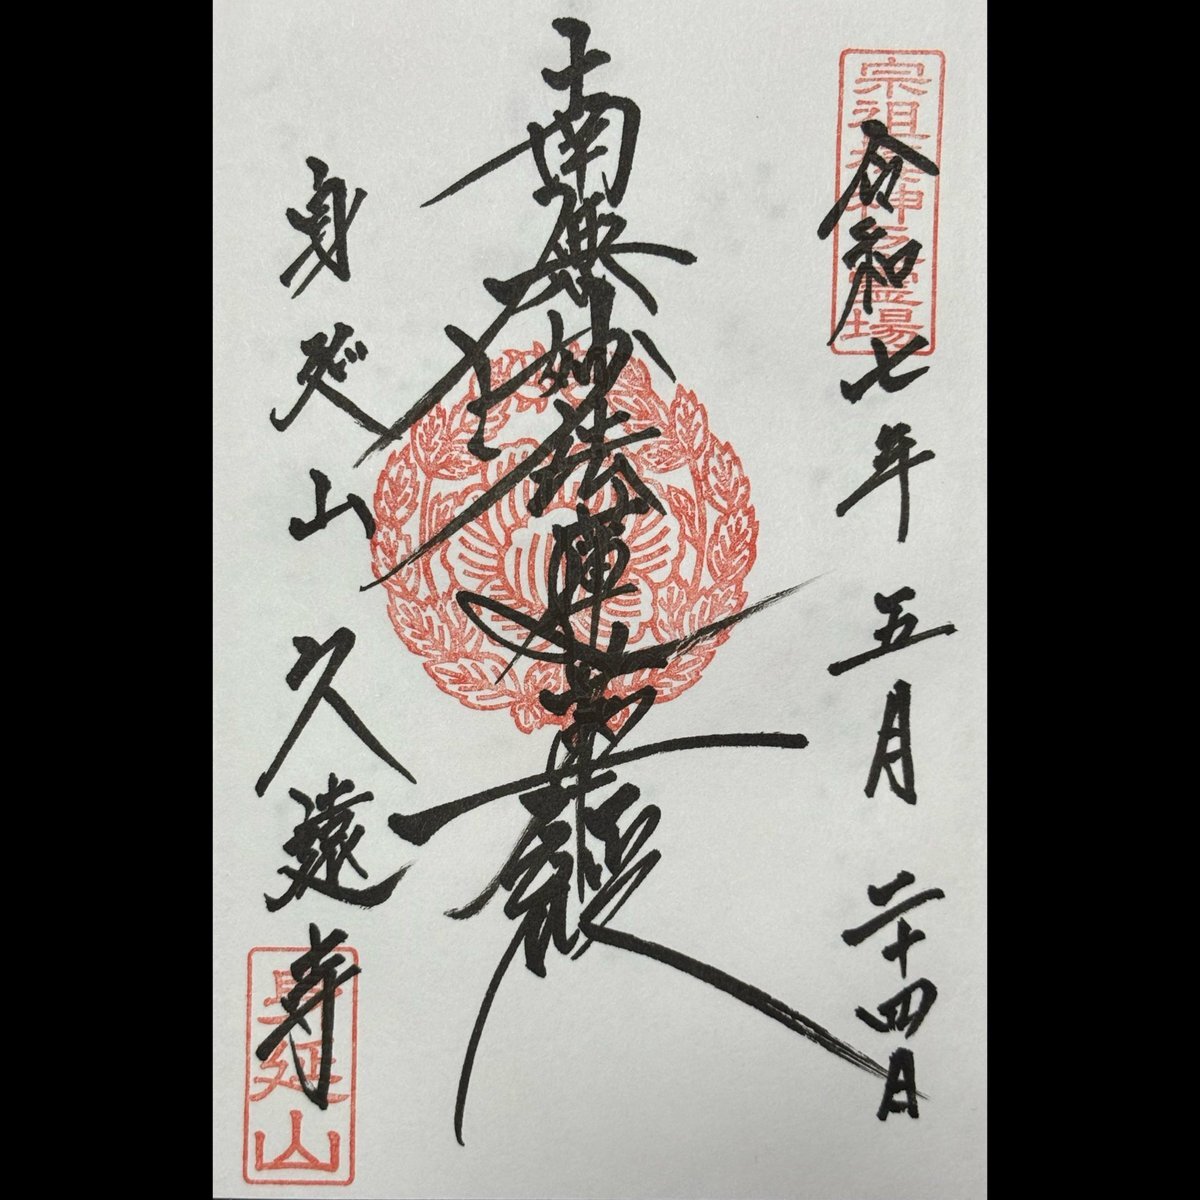 宗祖棲神之霊場
令和七年五月二十四日
南無妙法蓮華経
身延山久遠寺
身延山